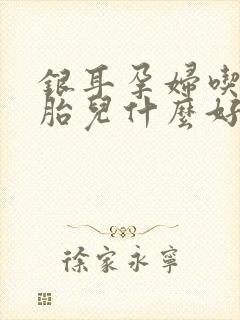 銀耳孕婦喫
胎兒什麼好
徐家永寧